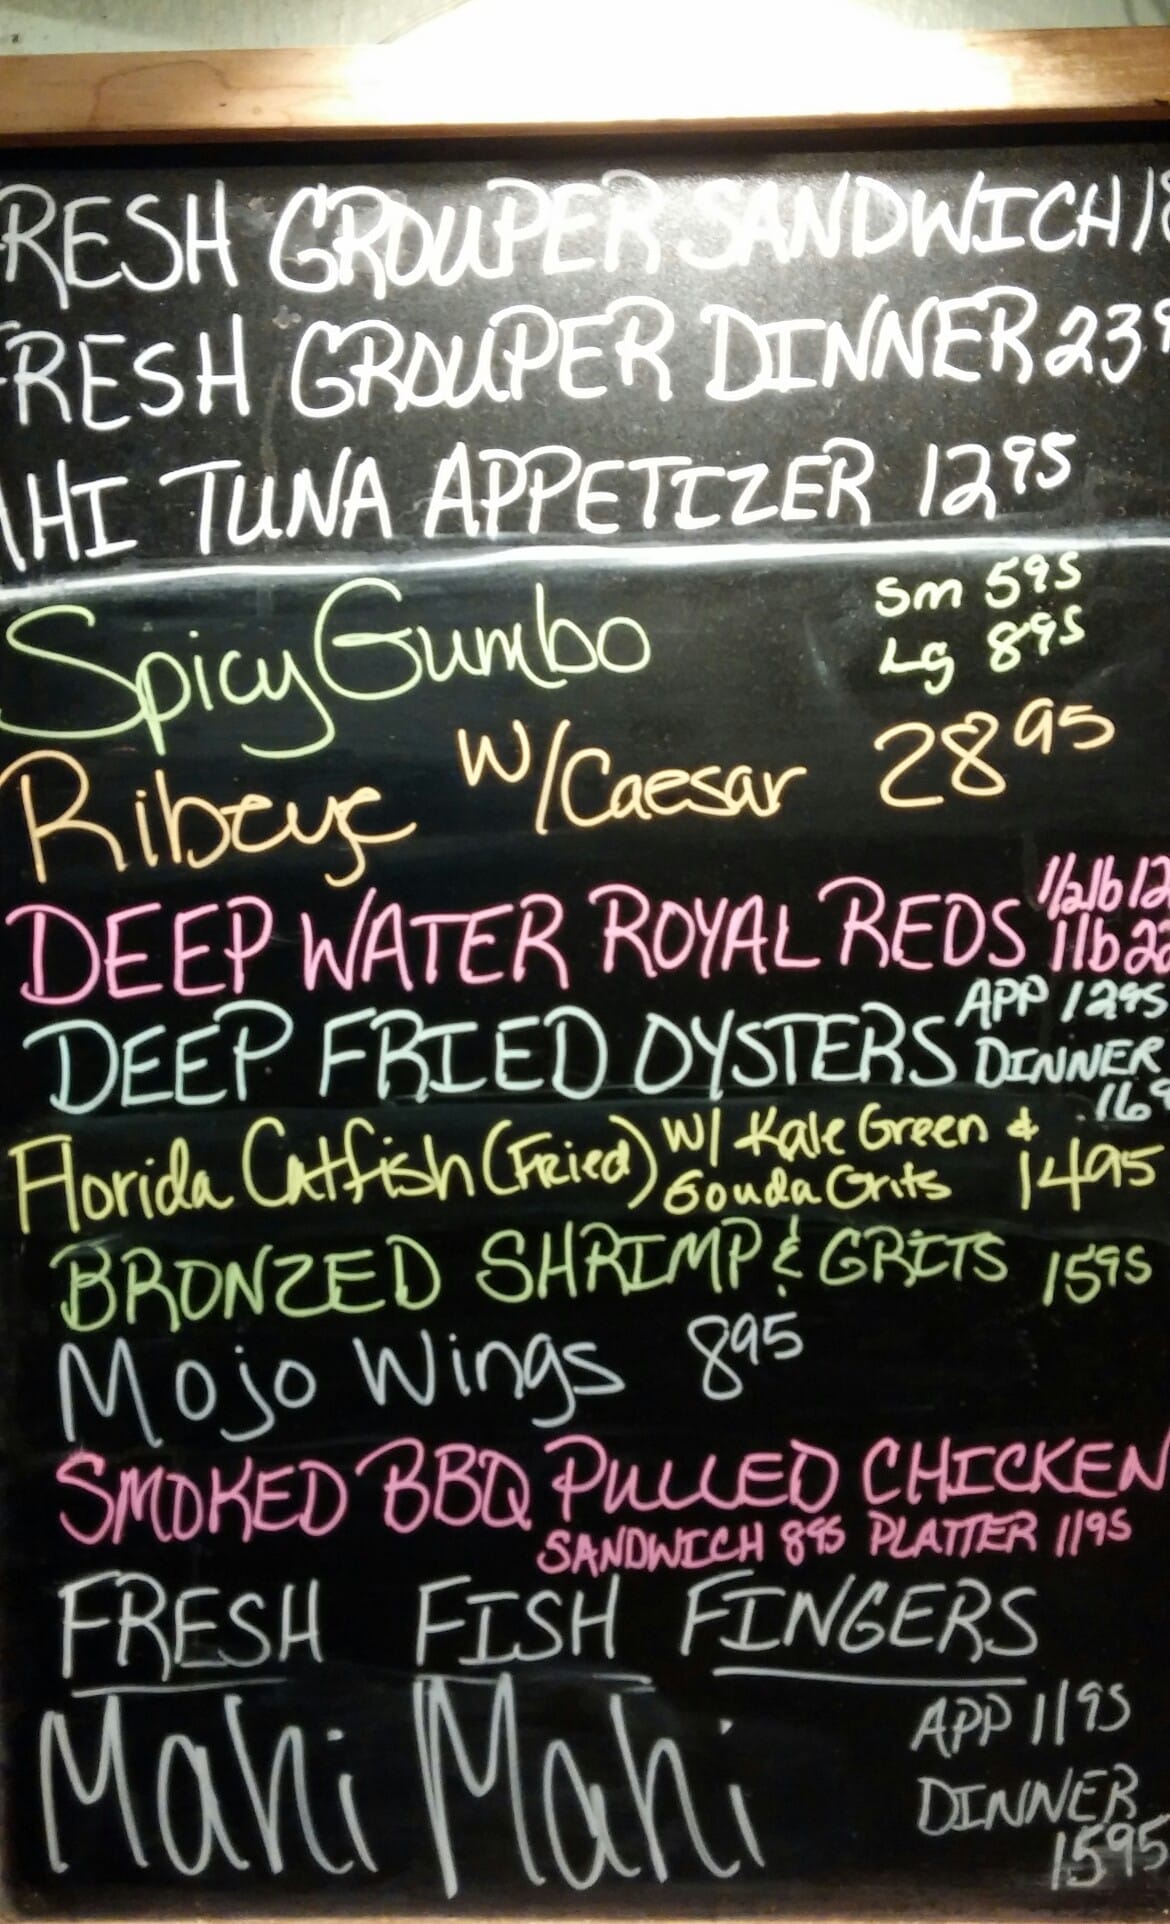 RESH GROUPER SANDWICH 18
FRESH GROUPER DINNER 239
AHI TUNA APPETIZER 1295
Spicy Gumbo Sm 595
Lg 895
Ribeye W/Caesar 2895
DEEP WATER ROYAL REDS 1/2lb 12
1lb 22
DEEP FRIED OYSTERS APP 1295
DINNER
169
Florida Catfish (Fried) W/ Kale Green &
Gouda Grits 1495
BRONZED SHRIMP & GRITS 1595
Mojo Wings 895
SMOKED BBQ PULLED CHICKEN
SANDWICH 895 PLATTER 1195
FRESH FISH FINGERS
Mahi Mahi APP 1195
DINNER
1595